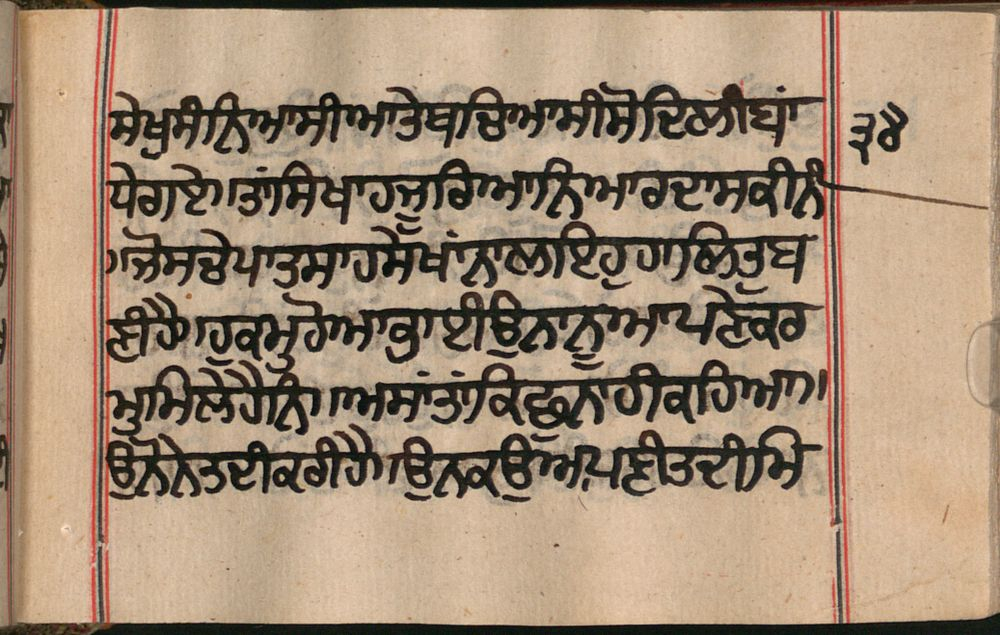 ਸੇਖੁਸੀਨਿਆਸੀਆਤੇਬਾਚਿਆਸੀਸੋਦਿਲੀਬਾਂ ੩੪
ਧੇਗਏ।ਤਾਂਸਿਖਾਹਜੂਰਿਆਨਿਅਰਦਾਸਕੀਨੀ
।ਜੋਸਚੇਪਾਤਸਾਹਸੇਖਾਂਨਾਲਾਇਹੁਹਾਲਿਤੁਬ
ਣੀਹੈ।ਹੁਕਮੁਹੋਆਭਾਈਉਨਾਨੂਆਪਣੇਕਰ
ਮੁਮਿਲੇਹੈਨਿ।।ਅਸਾਂਤਾਂਕਿਛੂਨਾਹੀਕਹਿਆ।
ਉਨੋਨੇਤਦੀਕਰੀਹੈ।ਉਨਕਉਅਪਣੀਤਦੀਮਿ